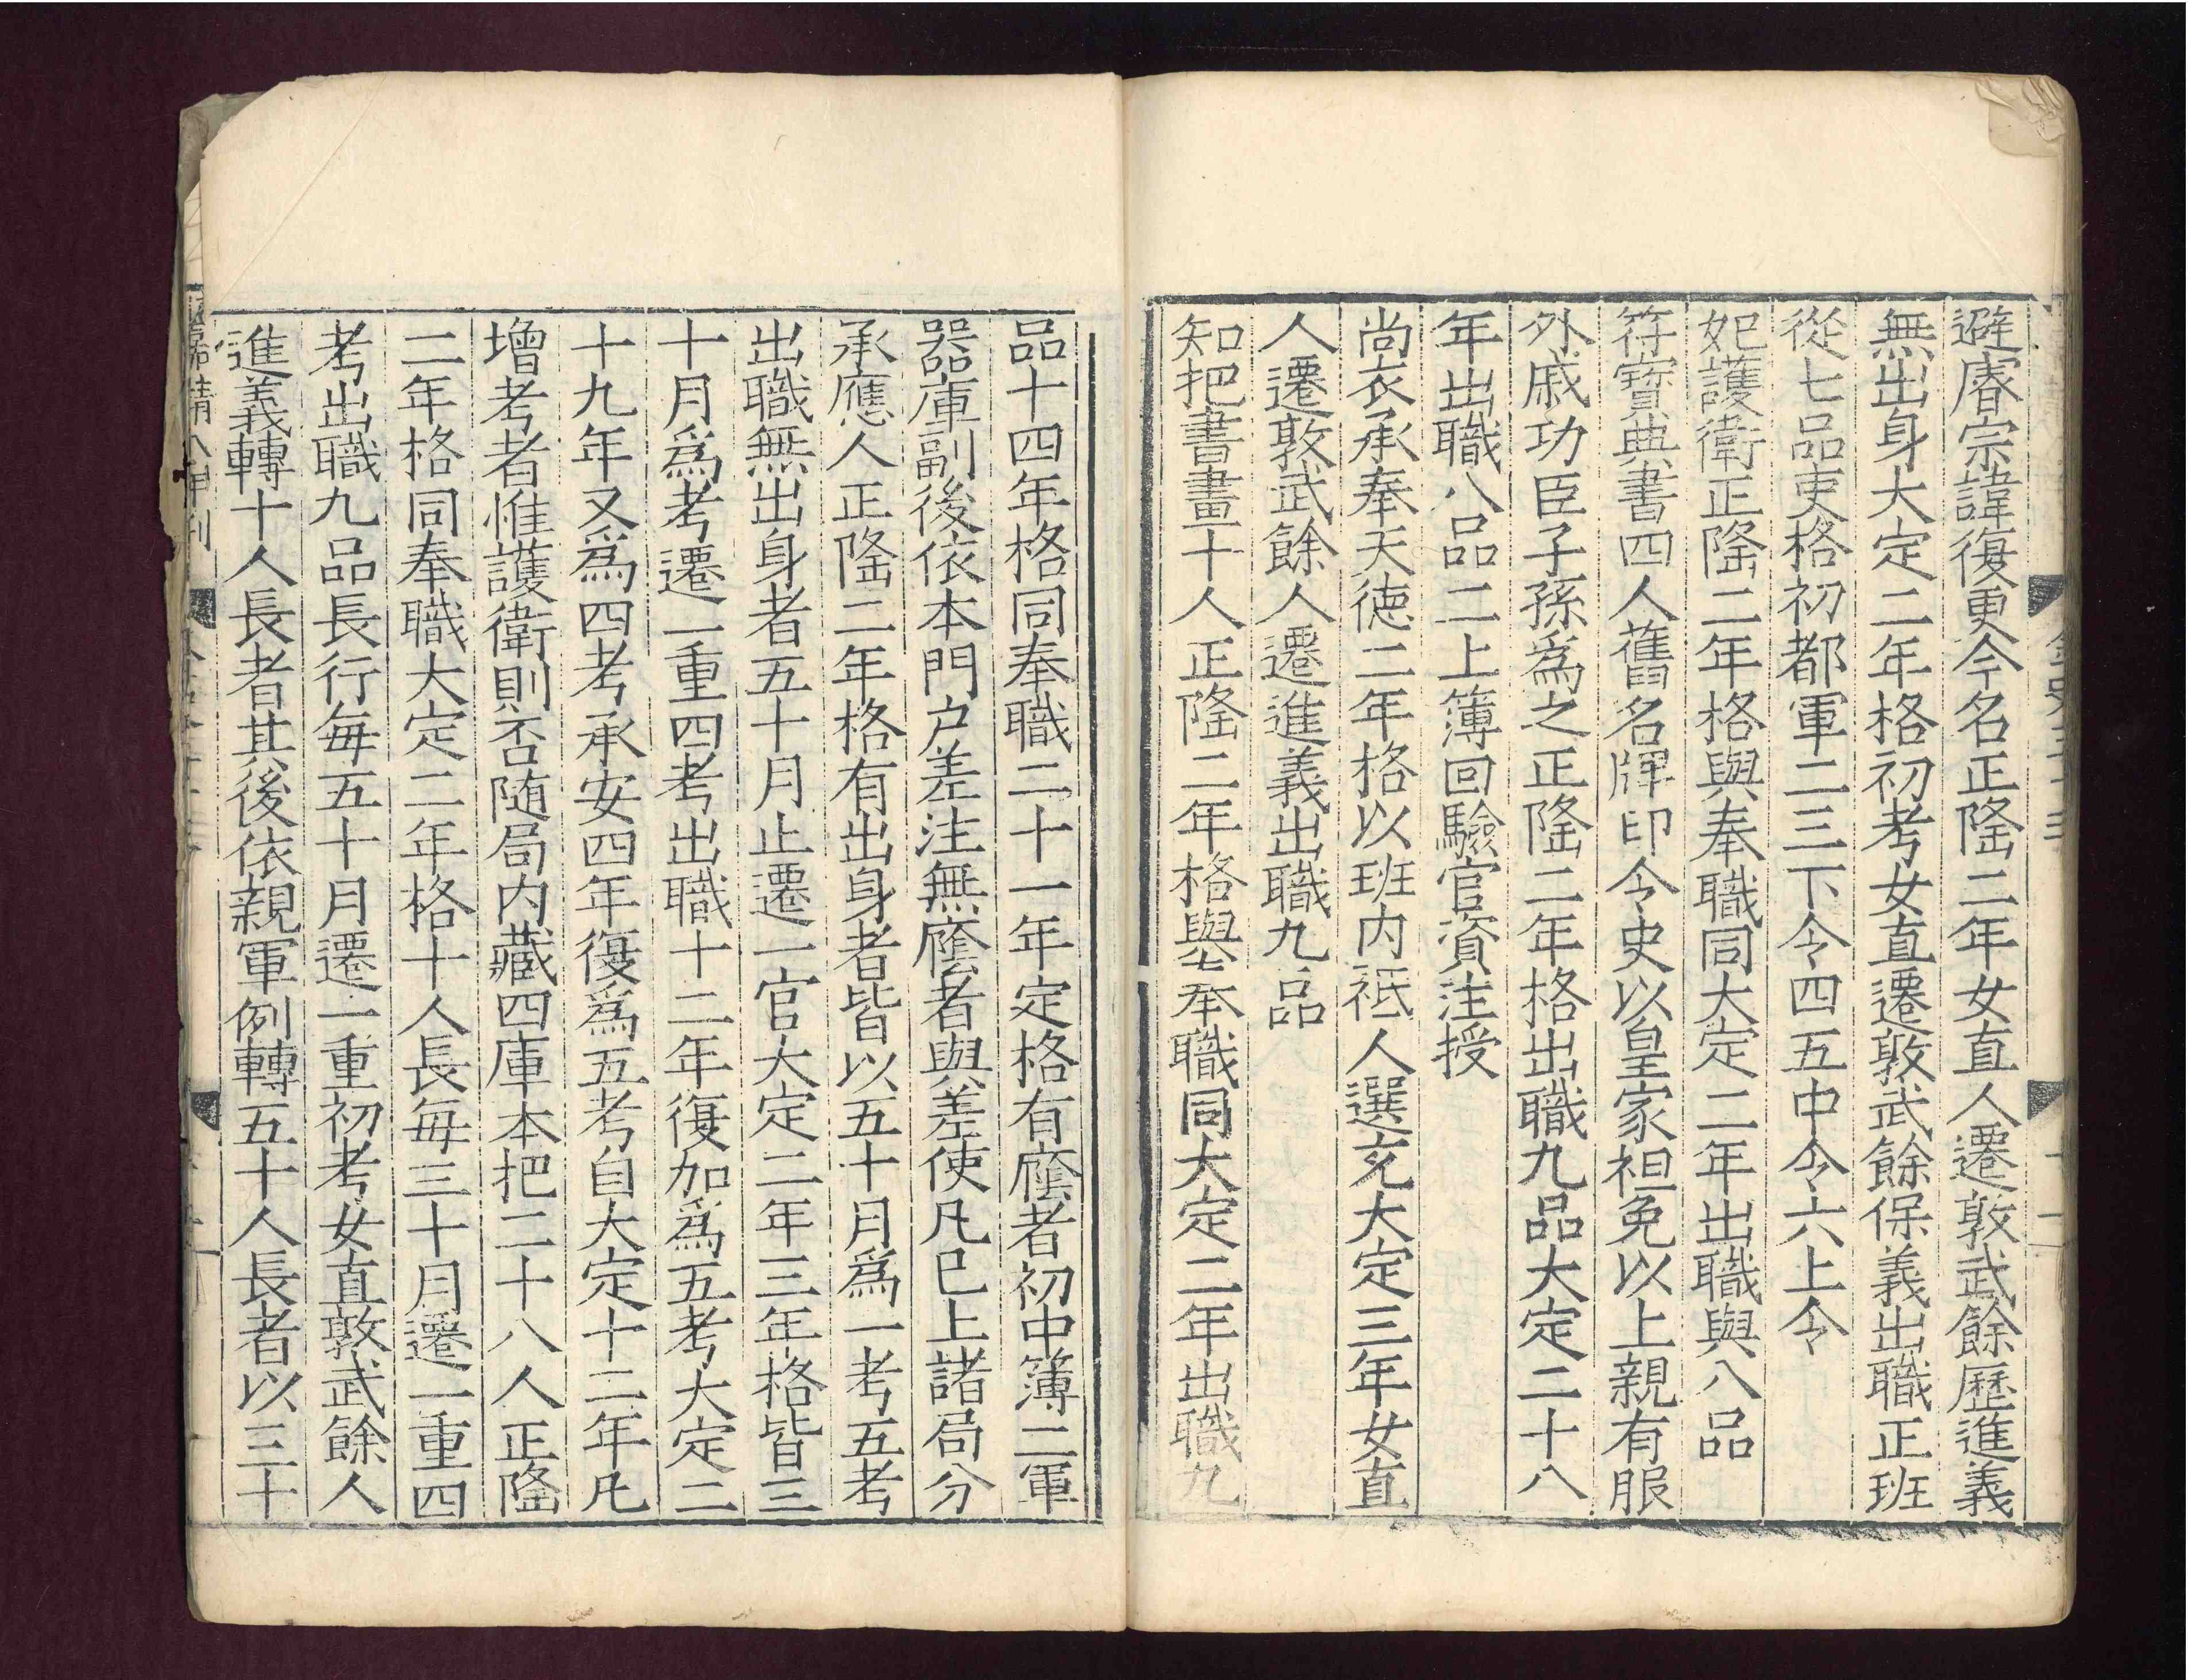 避睿宗諱復更今名正隆二年女直人遷敦武餘歷進義
無出身大定二年格初考女直遷敦武餘保義出職正班
從七品吏格初都軍二三下令四五中令六上令
妃護衛正隆二年格與奉職同大定二年出職與八品
符寳典書四人舊名牌印令史以皇家袒免以上親有服
外戚功臣子孫爲之正隆二年格出職九品大定二十八
年出職八品二上簿回驗官資注授
尚衣承奉天德二年格以班内祗人選充大定三年女直
人遷敦武餘人遷進義出職九品
知把書畫十人正隆二年格與奉職同大定二年出職九
品十四年格同奉職二十一年定格有廕者初中簿二軍
器庫副後依本門户差注無廕者與差使凡已上諸局分
承應人正隆二年格有出身者皆以五十月爲一考五考
出職無出身者五十月止遷一官大定二年三年格皆三
十月爲考遷一重四考出職十二年復加爲五考大定二
十九年又爲四考承安四年復爲五考自大定十二年凡
增考者惟護衛則否随局内藏四庫本把二十八人正隆
二年格同奉職大定二年格十人長每三十月遷一重四
考出職九品長行每五十月遷一重初考女直敦武餘人
進義轉十人長者其後依親軍例轉五十人長者以三十
嘉靖八年刊